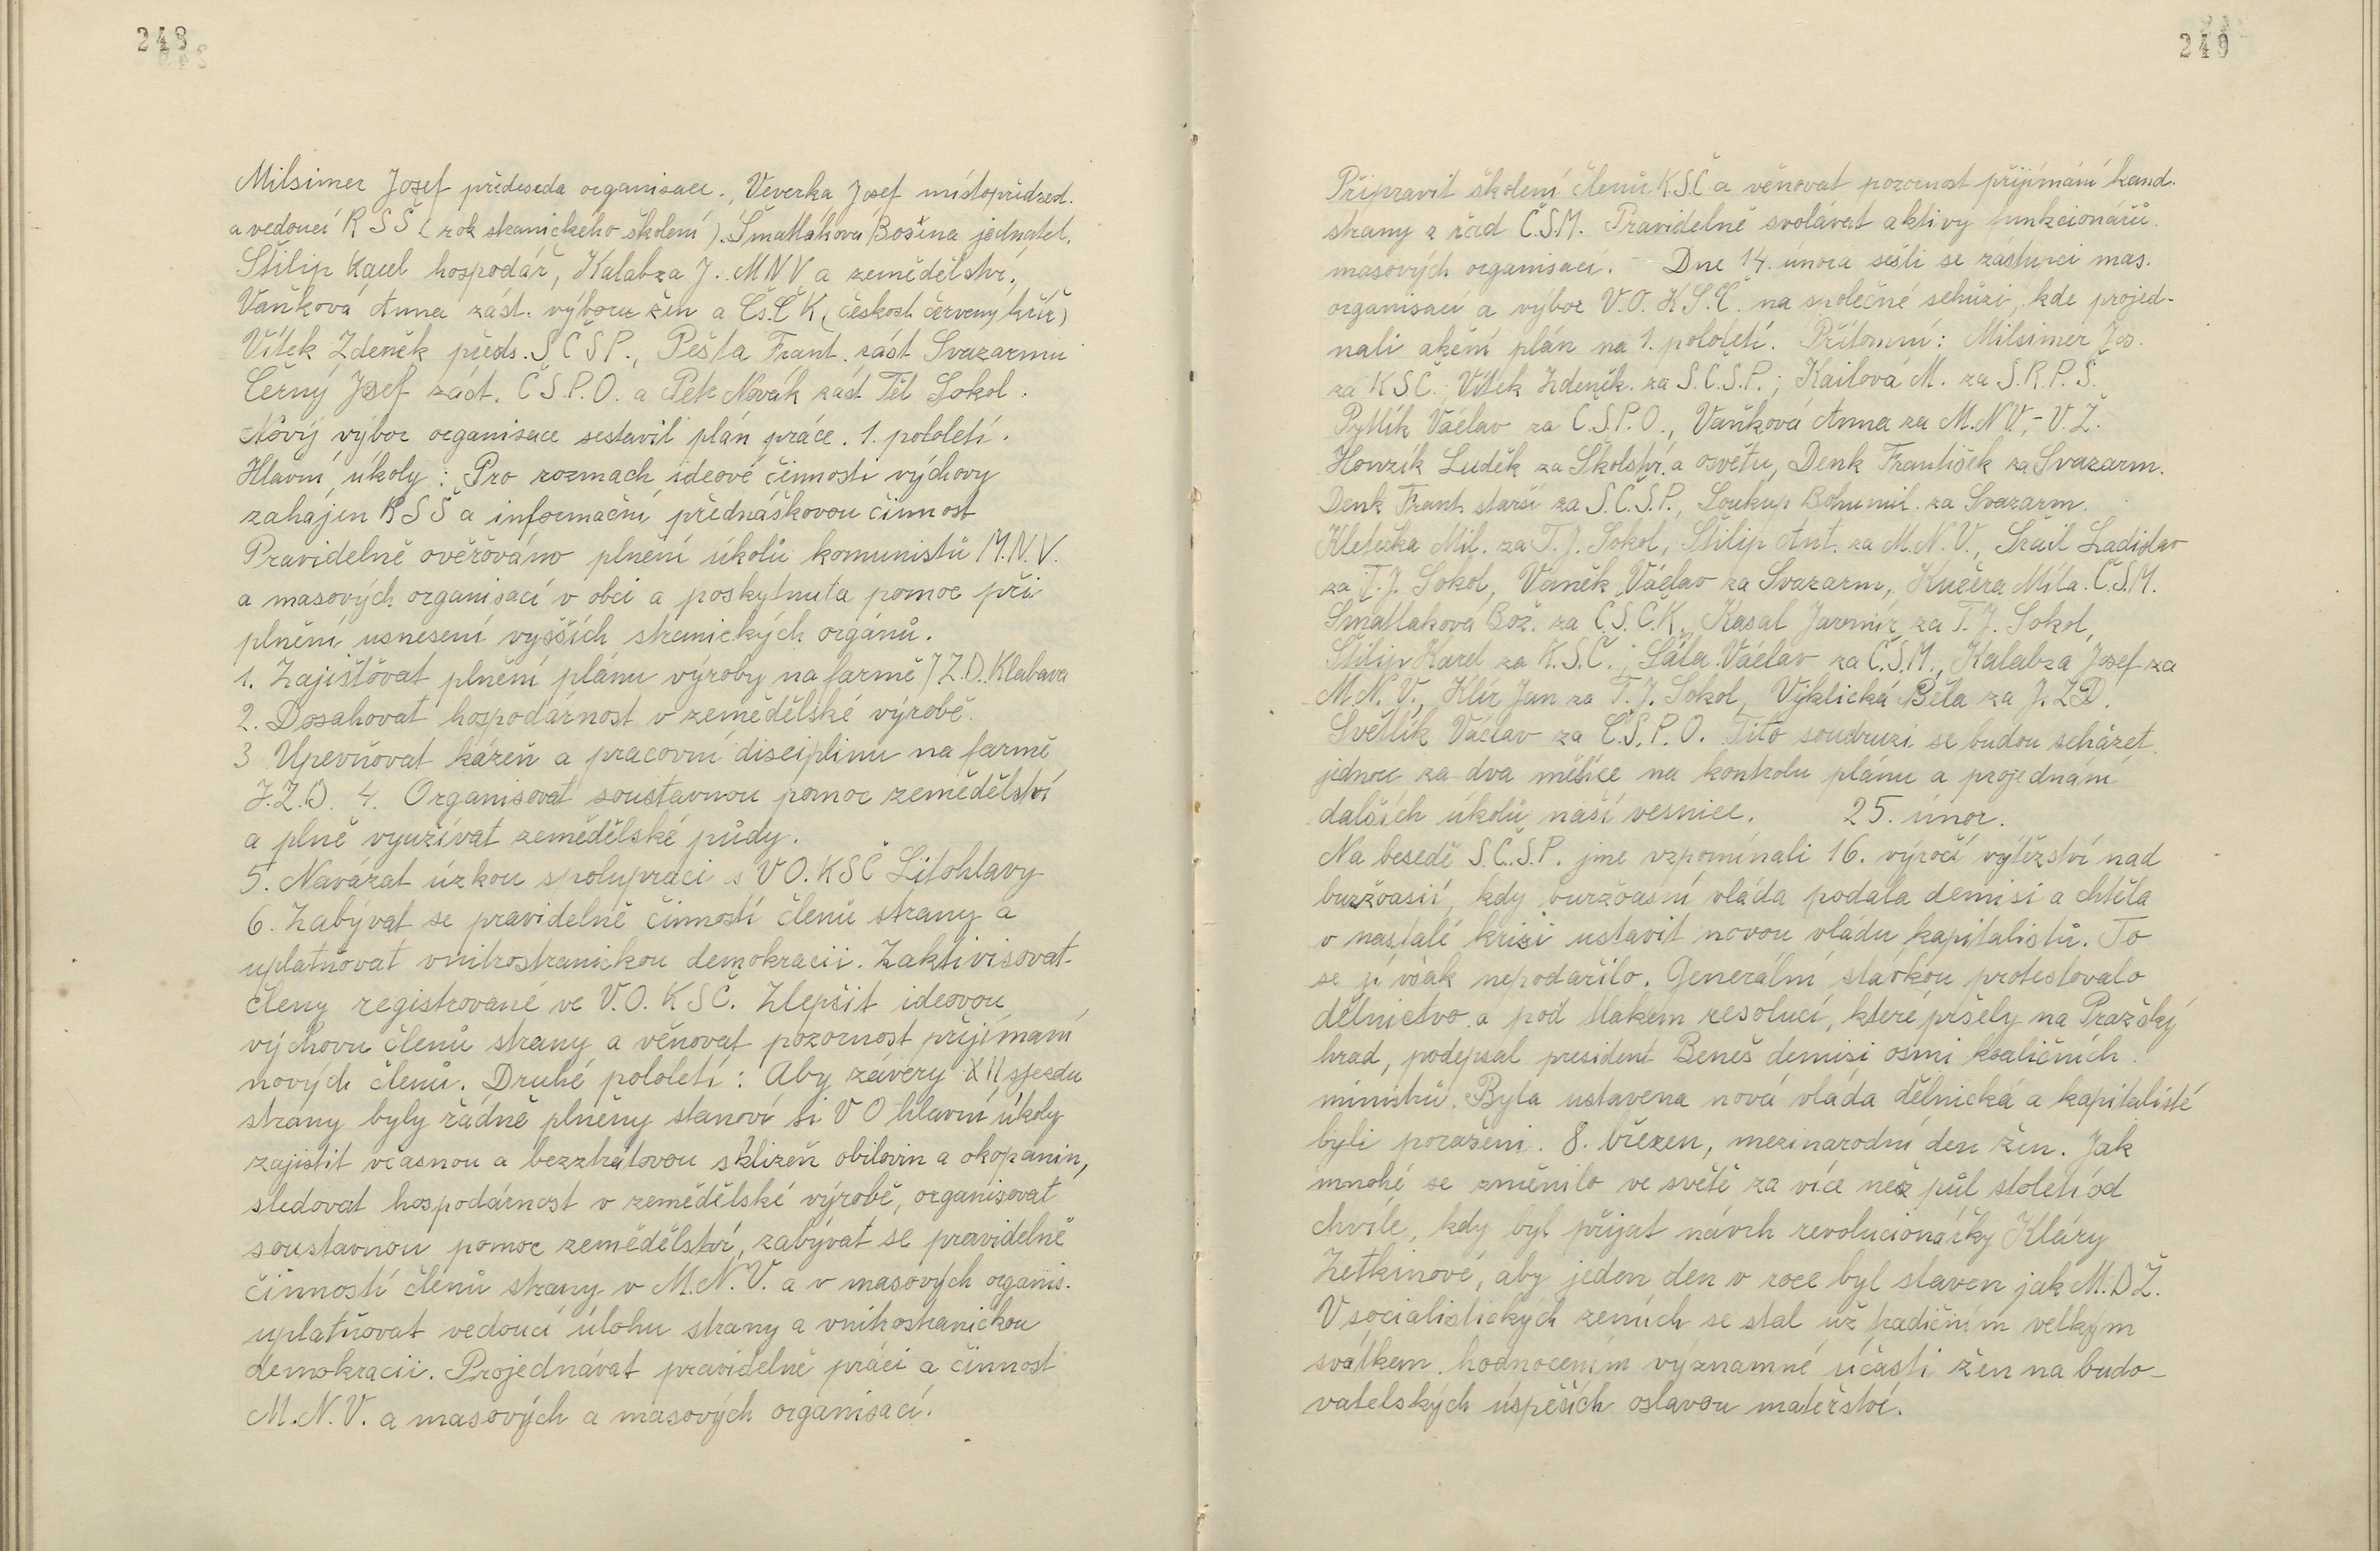 248
Milsimer Josef předseda organisace., Veverka Josef místopředsed.
a vedoucí R S Š (rok stranického školení). Šmatláková Božena jednatel,
Štilip Karel hospodář, Kalabza J. MNV a zemědělství,
Vaňková Anna zást. výboru žen a Čs.Č K (českosl. červený kříž)
Vítek Zdeněk předs. S Č S P., Pešta Frant. zást Svazarmu
Černý Josef zást. Č S.P.O. a Petr Novák zást Těl Sokol.
Nový výbor organisace sestavil plán práce. 1. pololetí.
Hlavní úkoly: Pro rozmach ideové činnosti výchovy
zahájen R S Š a informační přednáškovou činnost
Pravidelně ověřováno plnění úkolů komunistů M.N.V.
a masových organisací v obci a poskytnuta pomoc při
plnění usnesení vyšších stranických orgánů.
1. Zajišťovat plnění plánu výroby na farmě J Z.D. Klabava
2. Dosahovat hospodárnost v zemědělské výrobě.
3 Upevňovat kázeň a pracovní disciplinu na farmě
J.Z.D. 4. Organisovat soustavnou pomoc zemědělství
a plně využívat zemědělské půdy.
5. Navázat úzkou spolupráci s V O. KSČ Litohlavy
6. Zabývat se pravidelně činností členů strany a
uplatňovat vnitrostranickou demokracii. Zaktivisovat
členy registrované ve V.O. KSČ. Zlepšit ideovou
výchovu členů strany a věnovat pozornost přijímání
nových členů. Druhé pololetí: Aby závěry XII sjezdu
strany byly řádně plněny stanoví si V O hlavní úkoly
zajistit včasnou a bezztrátovou sklizeň obilovin a okopanin,
sledovat hospodárnost v zemědělské výrobě, organisovat
soustavnou pomoc zemědělství, zabývat se pravidelně
činností členů strany v M.N.V. a v masových organis.
uplatňovat vedoucí úlohu strany a vnitrostranickou
demokracii. Projednávat pravidelně práci a činnost
M.N.V. a masových a masových organisací.
249
Připravit školení členů K.S.Č a věnovat pozornost přijímání kand.
strany z řad Č.S.M. Pravidelně svolávat aktivy funkcionářů
masových organisací. - Dne 14. února sešli se zástupci mas.
organisací a výbor V.O. K S.Č. na společné schůzi, kde projed-
nali akční plán na 1. pololetí. Přítomni: Milsimer Jos.
za KSČ., Vítek Zdeněk. za S.Č.S.P.; Kailová M. za S.R.P.Š.
Pytlík Václav za Č.S.P.O., Vaňková Anna za M.N V.- V.Ž.
Honzík Luděk za Školství a osvětu, Denk František za Svazarm.
Denk Frant. starší za S.Č.S.P., Soukup Bohumil. za Svazarm.
Kletečka Mil. za T.J. Sokol, Štilip Ant. za M.N.V., Šrail Ladislav
za T.J. Sokol, Vaněk Václav za Svazarm, Kučera Míla. Č.S.M.
Šmatlaková Bož. za Č.S.Č.K., Kasal Jaromír za T.J. Sokol,
Štilip Karel za K.S.Č.; Sála Václav za Č.S.M., Kalabza Josef za
M.N.V., Klír Jan za T.J. Sokol, Vyklická Běla za J.ZD.
Světlík Václav za Č.S.P.O. Tito soudruzi se budou scházet
jednou za dva měsíce na kontrolu plánu a projednání
dalších úkolů naší vesnice. 25. únor.
Na besedě S.Č.S.P. jme vzpomínali 16. výročí vítězství nad
buržoasií, kdy buržoasní vláda podala demisi a chtěla
v nastalé krizi ustavit novou vládu kapitalistů. To
se jí však nepodařilo. Generální stávkou protestovalo
dělnictvo a pod tlakem resolucí, které přšely na Pražský
hrad, podepsal president Beneš demisi osmi koaličních
ministrů. Byla ustavena nová vláda dělnická a kapitalisté
byli poraženi. 8. březen, mezinarodní den žen. Jak
mnohé se změnilo ve světě za více než půl století od
chvíle, kdy byl přijat návrh revolucionářky Kláry
Zetkinové, aby jeden den v roce byl slaven jak M.DŽ.
V socialistických zemích se stal už tradičním velkým
svátkem, hodnocením významné účasti žen na budo-
vatelských úspěších oslavou mateřství.